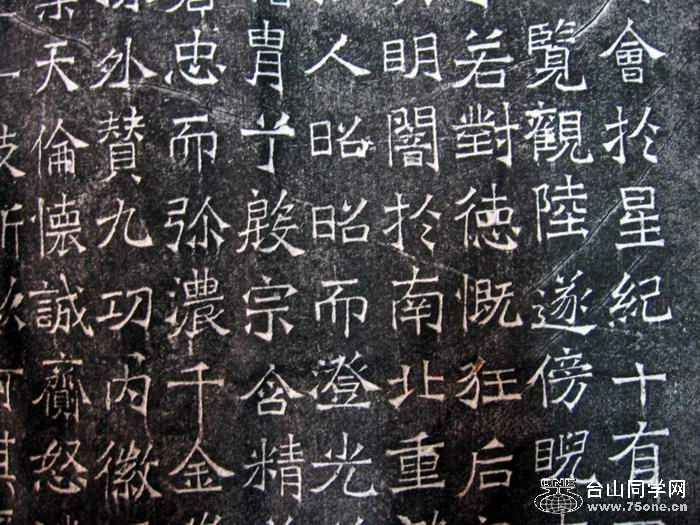 會扵星紀十有
覽觀陸遂傍睨
若對徳慨狂后
明闇扵南北重
人昭昭而澄光
胄于殷宗含精
忠而弥濃千金
外贊九功内徽
天倫懷誠怒
台山同学网
www.75one.cn